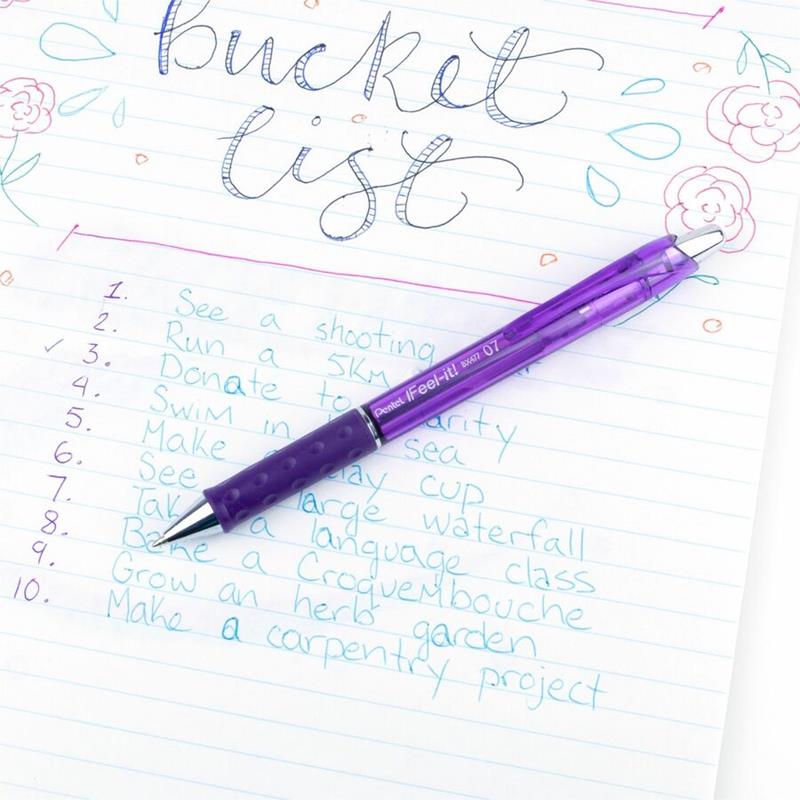 bucket
list
1. See a shooting
2. Run a 5Km
3. Donate to
4. Swim in sea
5. Make clay cup
6. See large waterfall
7. a language class
8. Bake a Croquembouche
9. Grow an herb garden
10. Make a carpentry project
Pentel iFeel-it! BX477 07